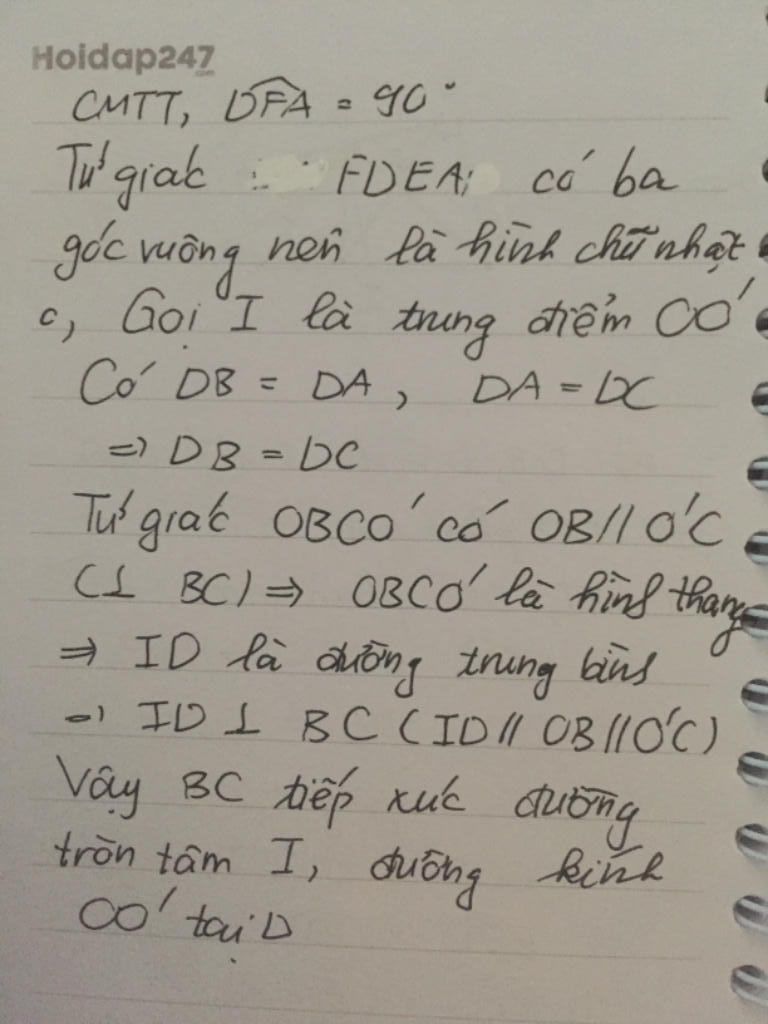 Hoidap247
.com
CMTT, DFA = 90°
Tứ giác FDEA có ba
góc vuông nên là hình chữ nhật
c, Gọi I là trung điểm OO'
Có DB = DA, DA = DC
=> DB = DC
Tứ giác OBCO' có OB // O'C
(⊥ BC) => OBCO' là hình thang
=> ID là đường trung bình
=> ID ⊥ BC (ID // OB // O'C)
Vậy BC tiếp xúc đường
tròn tâm I, đường kính
OO' tại D